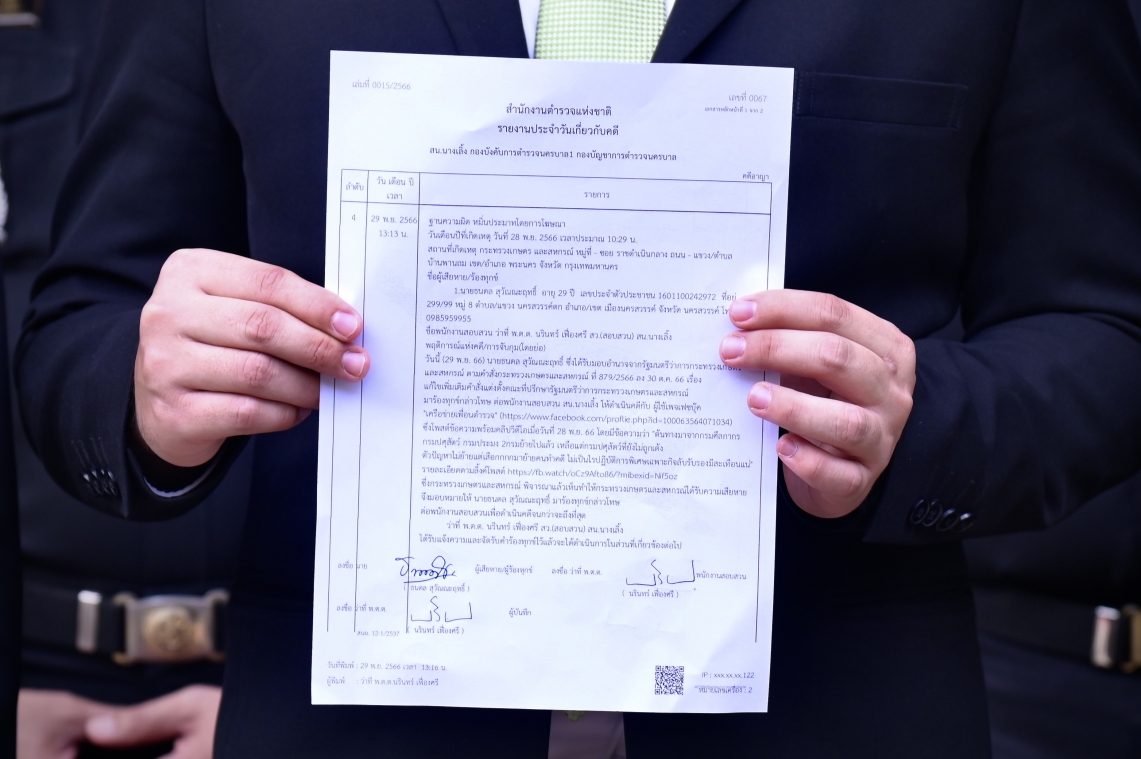 เล่มที่ 0015/2566
เลขที่ 0067
เอกสารหลักหน้าที่ 1 จาก 2
สำนักงานตำรวจแห่งชาติ
รายงานประจำวันเกี่ยวกับคดี
สน.นางเลิ้ง กองบังคับการตำรวจนครบาล1 กองบัญชาการตำรวจนครบาล
คดีอาญา
ลำดับ วัน เดือน ปี เวลา รายการ
4 29 พ.ย. 2566 ฐานความผิด หมิ่นประมาทโดยการโฆษณา
13:13 น. วันเดือนปีที่เกิดเหตุ วันที่ 28 พ.ย. 2566 เวลาประมาณ 10:29 น.
สถานที่เกิดเหตุ กระทรวงเกษตร และสหกรณ์ หมู่ที่ - ซอย ราชดำเนินกลาง ถนน - แขวง/ตำบล
บ้านพานถม เขต/อำเภอ พระนคร จังหวัด กรุงเทพมหานคร
ชื่อผู้เสียหาย/ร้องทุกข์
1.นายธนดล สุวัณณะฤทธิ์ อายุ 29 ปี เลขประจำตัวประชาชน 1601100242972 ที่อยู่
299/99 หมู่ 8 ตำบล/แขวง นครสวรรค์ตก อำเภอ/เขต เมืองนครสวรรค์ จังหวัด นครสวรรค์
0985959955
ชื่อพนักงานสอบสวน ว่าที่ พ.ต.ต. นรินทร์ เฟื่องศรี สว.(สอบสวน) สน.นางเลิ้ง
พฤติการณ์แห่งคดี/การจับกุม(โดยย่อ)
วันนี้ (29 พ.ย. 66) นายธนดล สุวัณณะฤทธิ์ ซึ่งได้รับมอบอำนาจจากรัฐมนตรีว่าการกระทรวงเกษตร
และสหกรณ์ ตามคำสั่งกระทรวงเกษตรและสหกรณ์ ที่ 879/2566 ลง 30 ต.ค. 66 เรื่อง
แก้ไขเพิ่มเติมคำสั่งแต่งตั้งคณะที่ปรึกษารัฐมนตรีว่าการกระทรวงเกษตรและสหกรณ์
มาร้องทุกข์กล่าวโทษ ต่อพนักงานสอบสวน สน.นางเลิ้ง ให้ดำเนินคดีกับ ผู้ใช้เพจเฟซบุ๊ค
"เครือข่ายเพื่อนตำรวจ" (https://www.facebook.com/profile.php?id=100063564071034)
ซึ่งโพสต์ข้อความพร้อมคลิปวิดีโอเมื่อวันที่ 28 พ.ย. 66 โดยมีข้อความว่า "ต้นทางมาจากกรมศุลกากร
กรมปศุสัตว์ กรมประมง 2กรมย้ายไปแล้ว เหลือแต่กรมปศุสัตว์ที่ยังไม่ถูกเด้ง
ตัวปัญหาไม่ย้ายแต่เสือกกกกมาย้ายคนทำคดี ไม่เป็นไรปฏิบัติการพิเศษเฉพาะกิจลับรับรองมีสะเทือนแน่"
รายละเอียดตามลิ้งค์โพสต์ https://fb.watch/oCz9Afto86/?mibexid=Nif5oz
ซึ่งกระทรวงเกษตรและสหกรณ์ พิจารณาแล้วเห็นทำให้กระทรวงเกษตรและสหกรณ์ได้รับความเสียหาย
จึงมอบหมายให้ นายธนดล สุวัณณะฤทธิ์ มาร้องทุกข์กล่าวโทษ
ต่อพนักงานสอบสวนเพื่อดำเนินคดีจนกว่าจะถึงที่สุด
ว่าที่ พ.ต.ต. นรินทร์ เฟื่องศรี สว.(สอบสวน) สน.นางเลิ้ง
ได้รับแจ้งความและจัดรับคำร้องทุกข์ไว้แล้วจะได้ดำเนินการในส่วนที่เกี่ยวข้องต่อไป
ลงชื่อ นาย ผู้เสียหาย/ผู้ร้องทุกข์ ลงชื่อ ว่าที่ พ.ต.ต. พนักงานสอบสวน
( ธนดล สุวัณณะฤทธิ์ ) ( นรินทร์ เฟื่องศรี )
ลงชื่อ ว่าที่ พ.ต.ต. ผู้บันทึก
( นรินทร์ เฟื่องศรี )
สนผ. 12.1/2537
วันที่พิมพ์ : 29 พ.ย. 2566 เวลา 13:16 น.
ผู้พิมพ์ : ว่าที่ พ.ต.ต.นรินทร์ เฟื่องศรี
IP : xxx.xx.xx.122
หมายเลขเครื่อง : 2